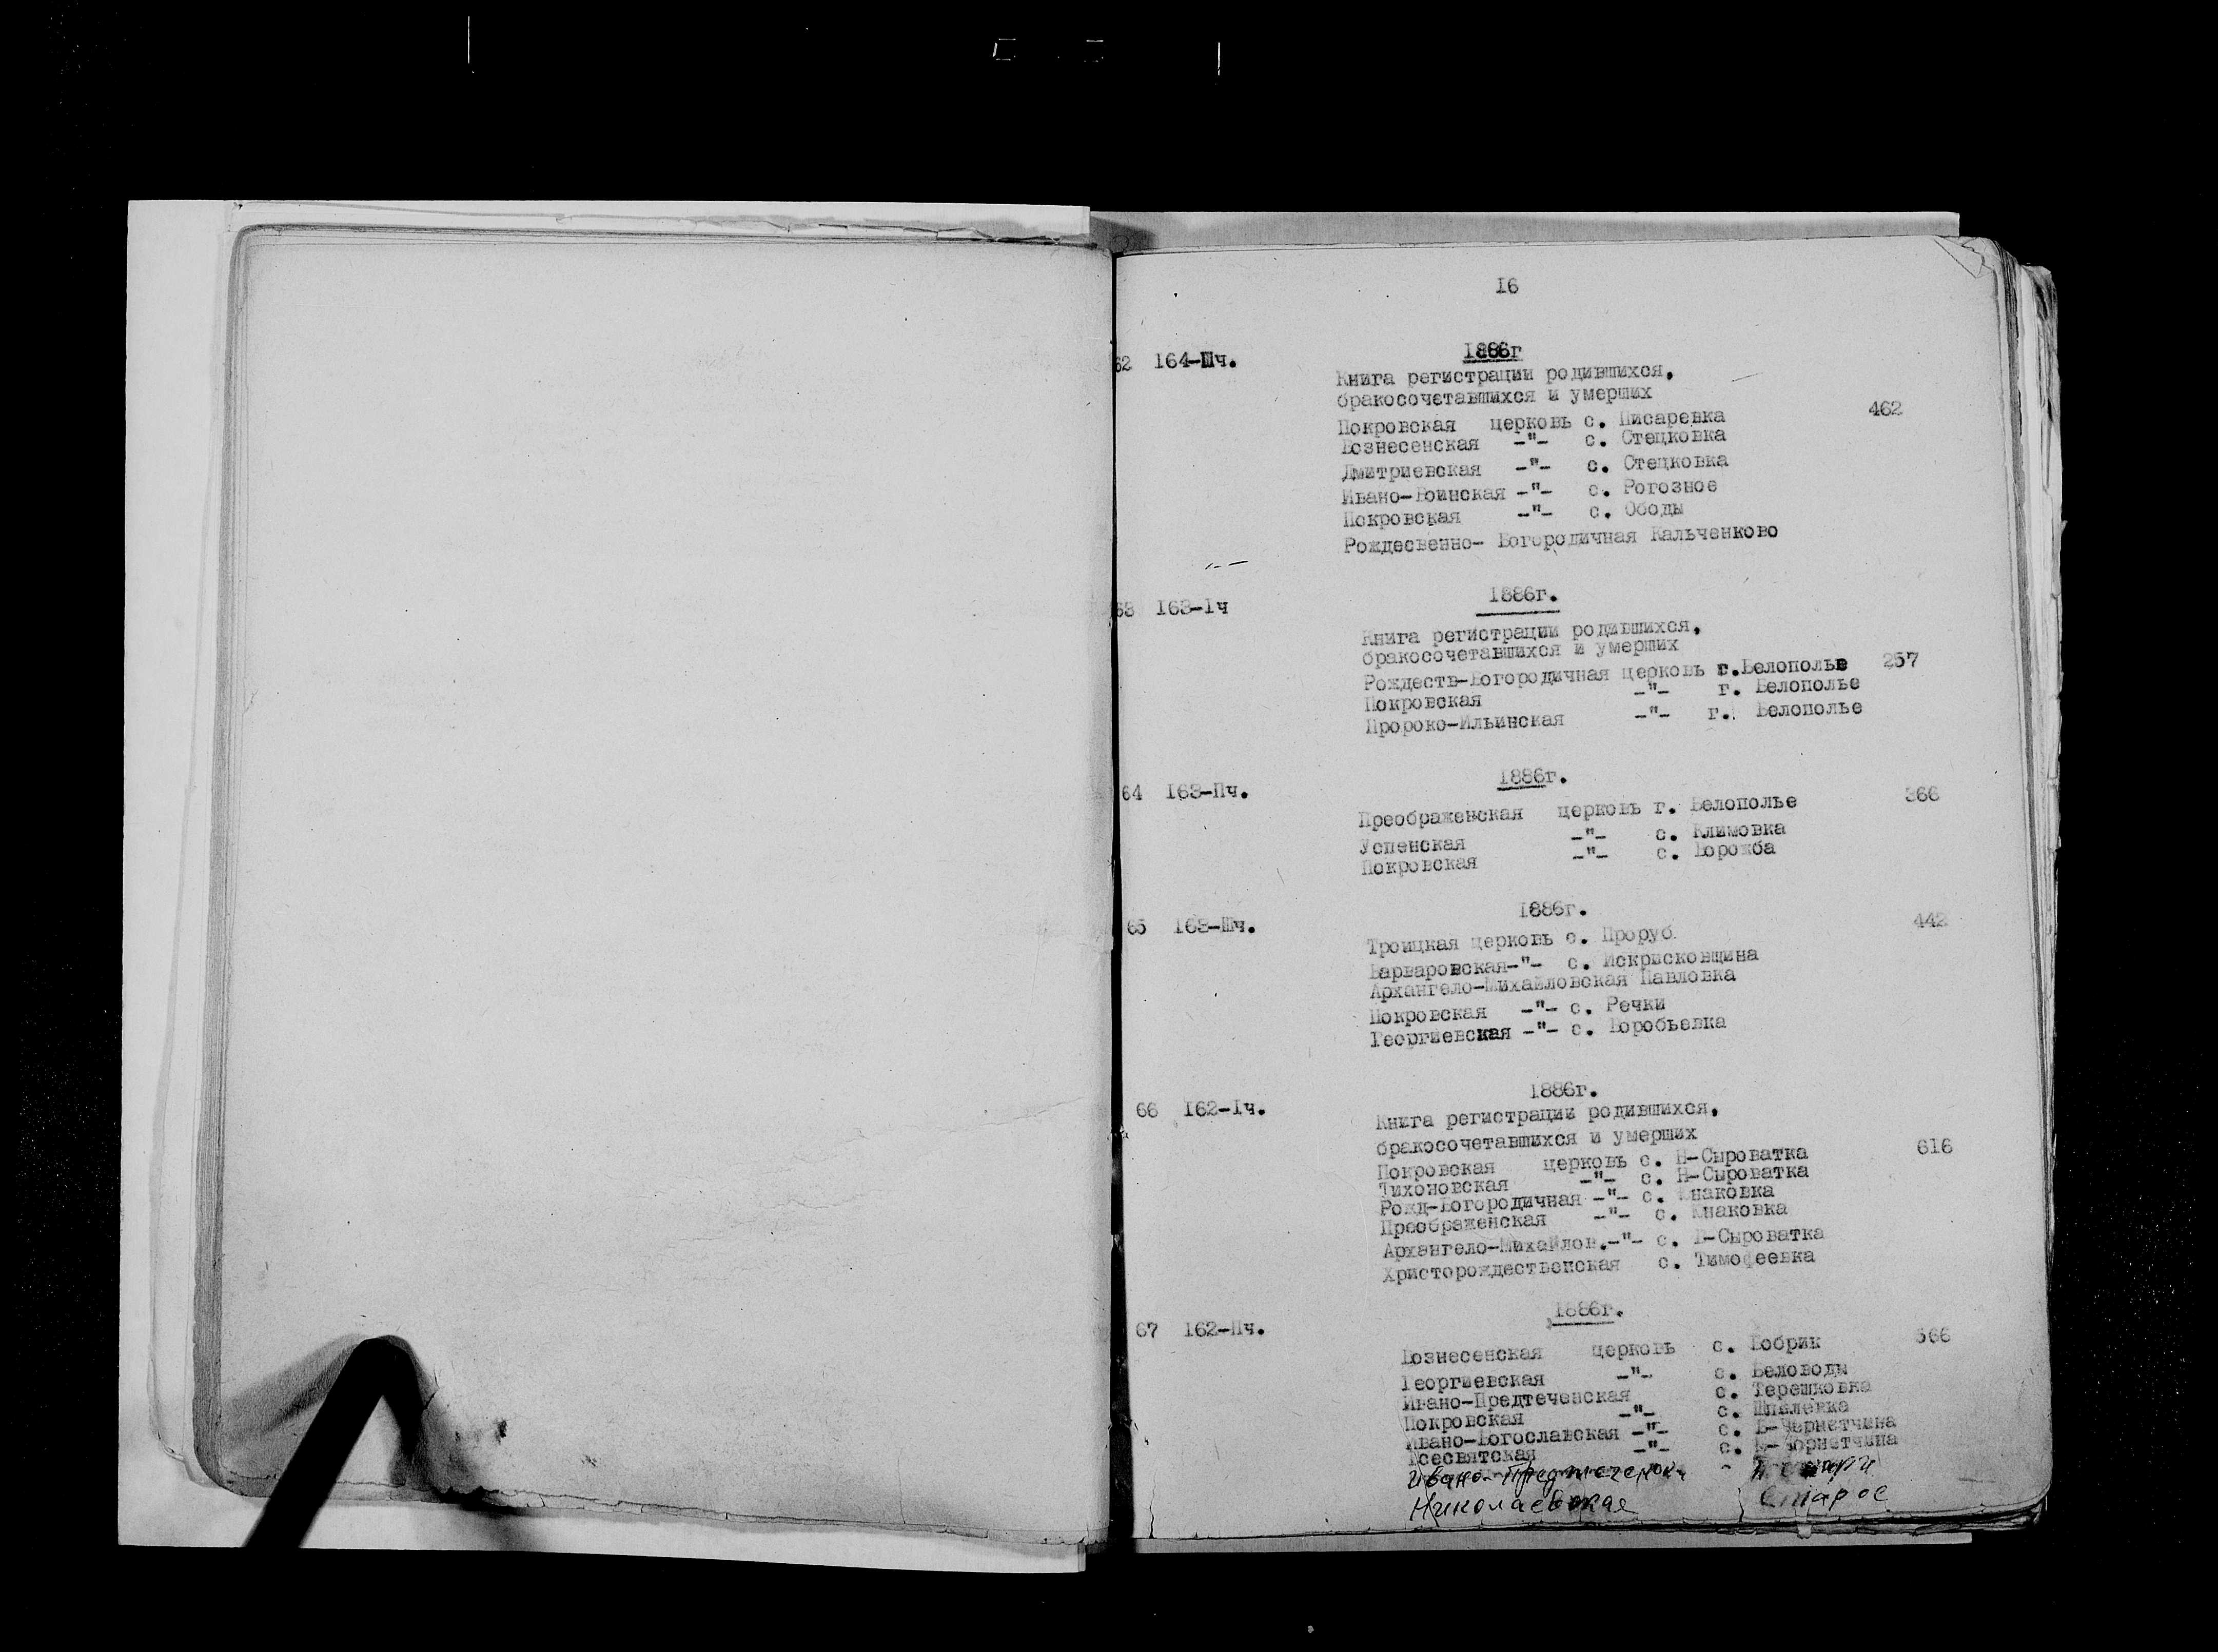 16
1886г
62 164-Шч.
Книга регистрации родившихся,
бракосочетавшихся и умерших
Покровская церковь с. Писаревка 462
Вознесенская -"- с. Стецковка
Дмитриевская -"- с. Стецковка
Ивано-Воинская -"- с. Рогозное
Покровская -"- с. Ободы
Рождесвенно- Богородичная Кальченково
1886г.
63 163-1ч
Книга регистрации родившихся,
бракосочетавшихся и умерших
Рождеств-Богородичная церковь г.Белополье 257
Покровская -"- г. Белополье
Пророко-Ильинская -"- г. Белополье
1886г.
64 163-Пч.
Преображенская церковь г. Белополье 366
Успенская -"- с. Климовка
Покровская -"- с. Ворожба
1886г.
65 163-Шч. 442
Троицкая церковь с. Проруб
Варваровская-"- с. Искрисковщина
Архангело-Михайловская Павловка
Покровская -"- с. Речки
Георгиевская -"- с. Воробьевка
1886г.
66 162-1ч.
Книга регистрации родившихся,
бракосочетавшихся и умерших
Покровская церковь с. Н-Сыроватка 616
Тихоновская -"- с. Н-Сыроватка
Рожд-Богородичная -"- с. Юнаковка
Преображенская -"- с. Юнаковка
Архангело-Михайлов.-"- с. В-Сыроватка
Христорождественская с. Тимофеевка
1886г.
67 162-Пч.
Вознесенская церковь с. Бобрик 566
Георгиевская -"- с. Беловоды
Ивано-Предтеченская с. Терешковка
Покровская -"- с. Шпилевка
Ивано-Богославская -"- с. В-Чернетчина
Всесвятская -"- с. В-Чернетчина
Ивано-Предтеченск -
Николаевская Старое